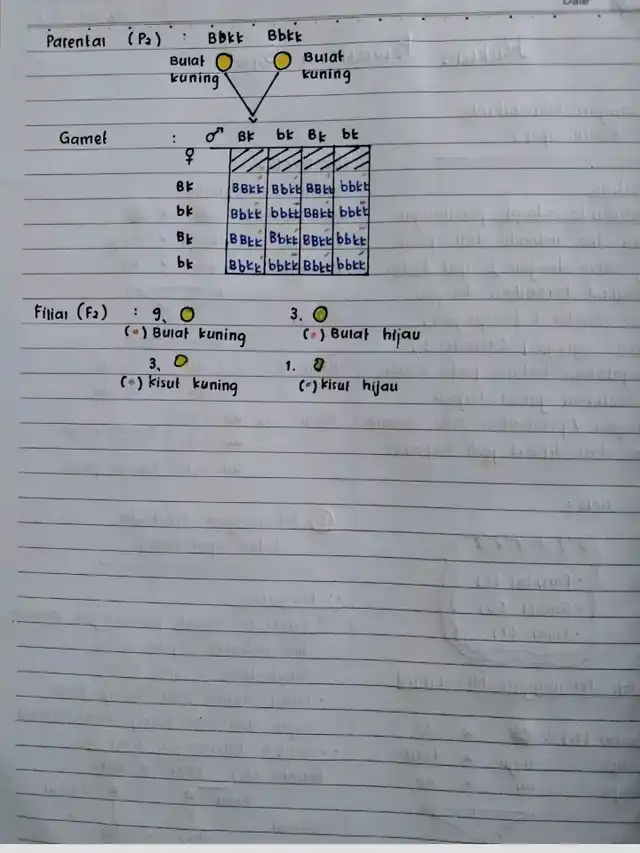 Date
Parental (P2) : Bbkk Bbkk
Bulat kuning Bulat kuning
Gamet : ♂ BK bk Bk bk
♀
BK BBKK BbKk BBKk bbkk
bk BbKk bbkk BBKk bbkk
Bk BBKk Bbkk BBKk bbkk
bk BbKk bbkk Bbkk bbkk
Filial (F2) : 9. 3.
( ) Bulat kuning ( ) Bulat hijau
3. 1.
( ) kisut kuning ( ) kisut hijau